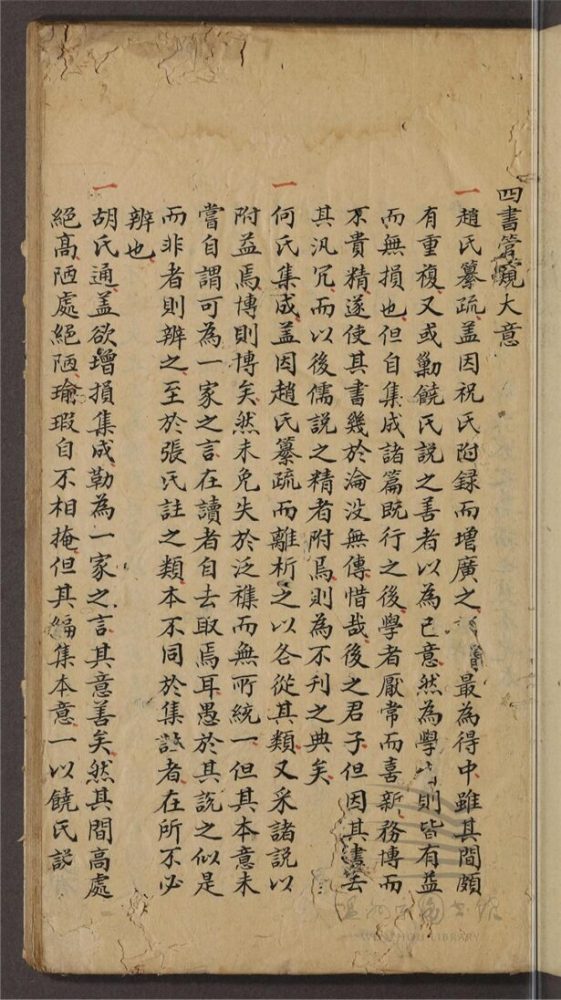 四書管窺大意
一趙氏纂疏蓋因祝氏附録而增廣之最為得中雖其間頗
有重複又或勦饒氏說之善者以為己意然為學者則皆有益
而無損也但自集成諸篇既行之後學者厭常而喜新務博而
不貴精遂使其書幾於淪没無傳惜哉後之君子但因其書去
其汎冗而以後儒説之精者附焉則為不刊之典矣
一何氏集成蓋因趙氏纂疏而離析之以各從其類又采諸説以
附益焉博則博矣然未免失於泛襍而無所統一但其本意未
嘗自謂可為一家之言在讀者自去取焉耳愚於其說之似是
而非者則辨之至於張氏註之類本不同於集註者在所不必
辨也
一胡氏通蓋欲增損集成勒為一家之言其意善矣然其間高處
絕高陋處絕陋瑜瑕自不相掩但其編集本意一以饒氏說
溫州市圖書館
WENZHOU LIBRARY